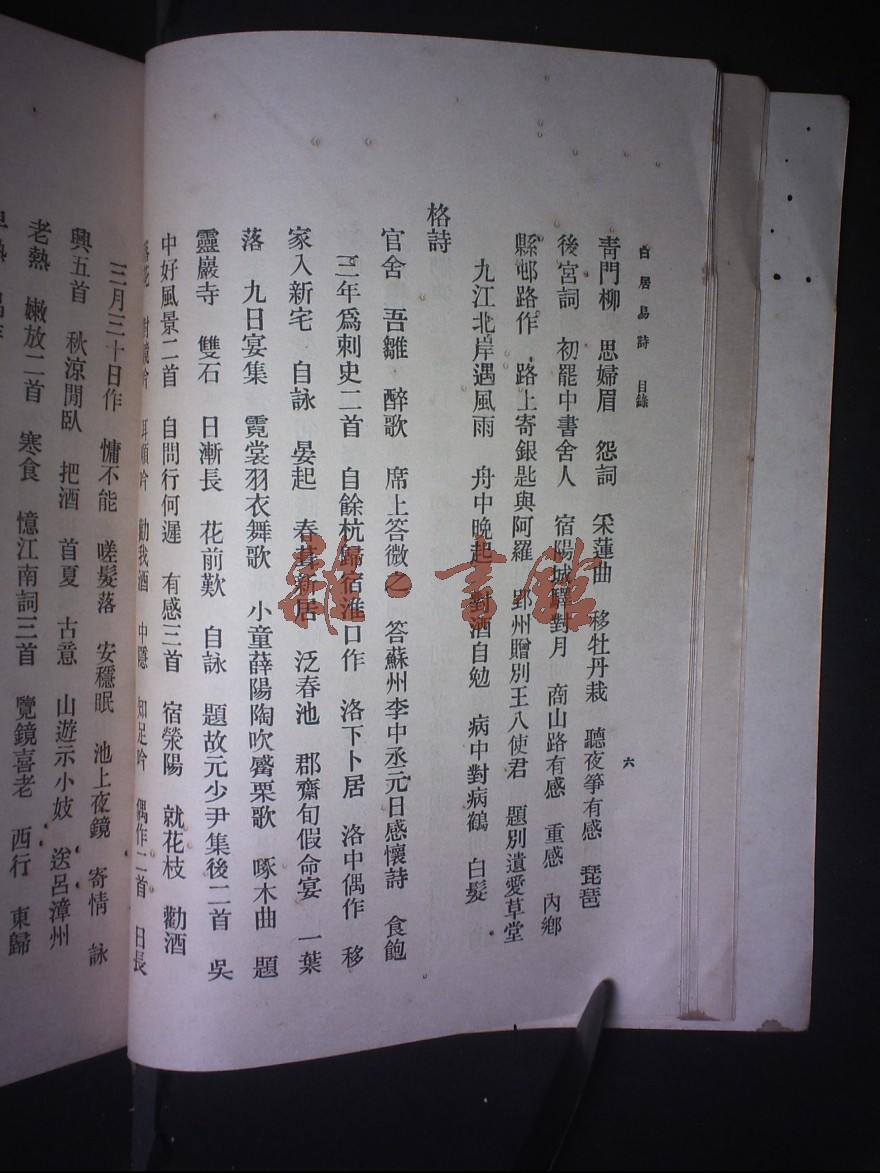 白居易詩 目錄 六
青門柳 思婦眉 怨詞 采蓮曲 移牡丹栽 聽夜箏有感 琵琶
後宮詞 初罷中書舍人 宿陽城驛對月 商山路有感 重感 內鄉
縣邨路作 路上寄銀匙與阿羅 郢州贈別王八使君 題別遺愛草堂
九江北岸遇風雨 舟中晚起 對酒自勉 病中對病鶴 白髮
格詩
官舍 吾雛 醉歌 席上答微之 答蘇州李中丞元日感懷詩 食飽
三年爲刺史二首 自餘杭歸宿淮口作 洛下卜居 洛中偶作 移
家入新宅 自詠 晏起 春葺新居 泛春池 郡齋旬假命宴 一葉
落 九日宴集 霓裳羽衣舞歌 小童薛陽陶吹觱栗歌 啄木曲 題
靈巖寺 雙石 日漸長 花前歎 自詠 題故元少尹集後二首 吳
中好風景二首 自問行何遲 有感三首 宿滎陽 就花枝 勸酒
落花 對鏡吟 耳順吟 勸我酒 中隱 知足吟 偶作二首 日長
三月三十日作 慵不能 嗟髮落 安穩眠 池上夜鏡 寄情 詠
興五首 秋涼閒臥 把酒 首夏 古意 山遊示小妓 送呂漳州
老熱 嫩放二首 寒食 憶江南詞三首 覽鏡喜老 西行 東歸
早熱
雜·書館